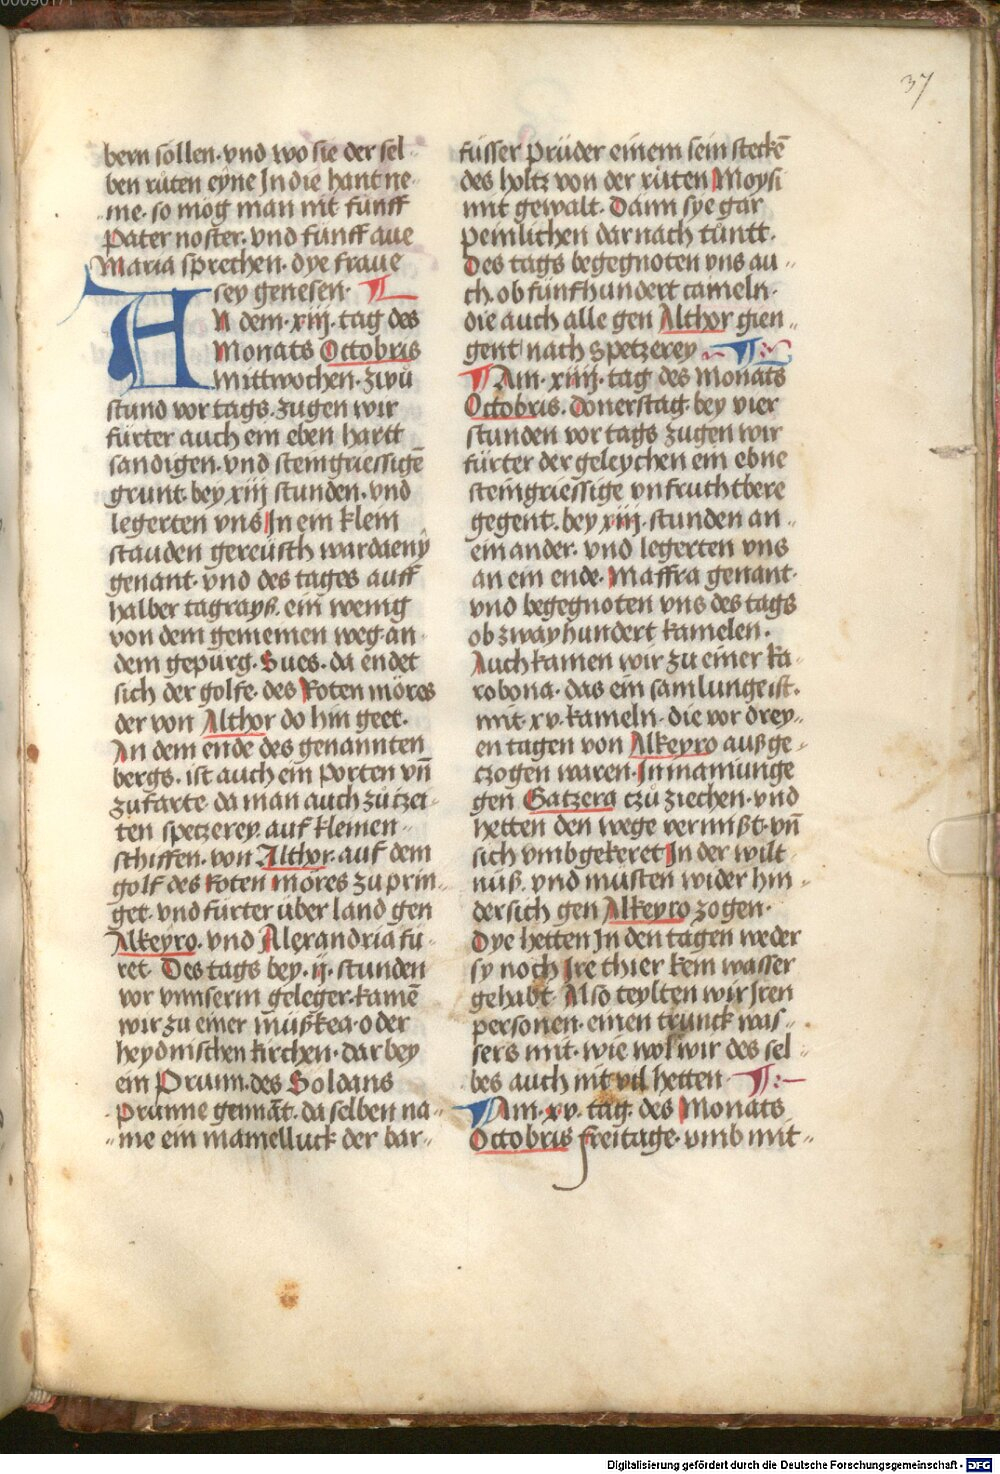 37
bern sollen· vnd wo sie der sel-
ben růten eyne In die hant ne-
me· so mög man mit fünff
pater noster· vnd fünff aue
Maria sprechen· dye fraue
sey genesen·
An dem· xiij· tag des
Monats Octobris
mittwochen· zwů
stund vor tags· zugen wir
fürter auch ein eben hartt
sandigen· vnd steingriessigē
grunt· bey xiij stunden· vnd
legerten vns In ein klein
stauden gereüsch wardaeny
genant· vnd des tages auff
halber tagrayß· ein wenig
von dem gemeinen weg· an
dem gepürg· Sues· da endet
sich der golfe· des Roten möres
der von Althor do hin geet·
An dem ende des genannten
bergs· ist auch ein porten vn̄
zufarte· da man auch zů tzei-
ten spetzerey· auf kleinen
schiffen· von Althor· auf dem
golf des Roten möres zu prin-
get· vnd fürter über land gen
Alkeyro· vnd Alexandria fu-
ret· Des tags bey· ij· stunden
vor vnnserm geleger· kamē
wir zu einer müßkea· oder
heydnischen kirchen· dar bey
ein Prunn· des Soldans
prunne gennāt· da selben na-
me ein mamelluck der bar-
füsser prüder einem sein steckē
des holtz von der rüten Moysi
mit gewalt· Dann sye gar
peinlichen dar nach tůntt·
Des tags begegnoten vns au-
ch· ob fünfhundert cameln·
die auch alle gen Althor gien-
gent nach spetzerey
Am· xiiij· tag des monats
Octobris· donerstag· bey vier
stunden vor tags zugen wir
fürter der geleychen ein ebne
steingriessige vnfruchtbere
gegent· bey xiij· stunden an-
ein ander· vnd legerten vns
an ein ende· Maffra genant·
vnd begegnoten vns des tags
ob zway hundert kamelen·
Auch kamen wir zu einer ka-
robona· das ein samlunge ist·
mit· xv· kameln· die vor drey-
en tagen von Alkeyro außge-
czogen waren· In mainunge
gen Gatzera czů ziechen· vnd
hetten den wege vermißt· vn̄
sich vmbgekeret In der wilt
nüß· vnd müsten wider hin-
dersich gen Alkeyro zogen·
Dye hetten In den tagen weder
sy noch Ire thier kein wasser
gehabt· Also teylten wir Iren
personen· einen trunck was-
sers mit· wie wol wir des sel-
bes auch nit vil hetten
Am· xv· tag· des Monats
Octobris freitage· vmb mit-
Digitalisierung gefördert durch die Deutsche Forschungsgemeinschaft - DFG